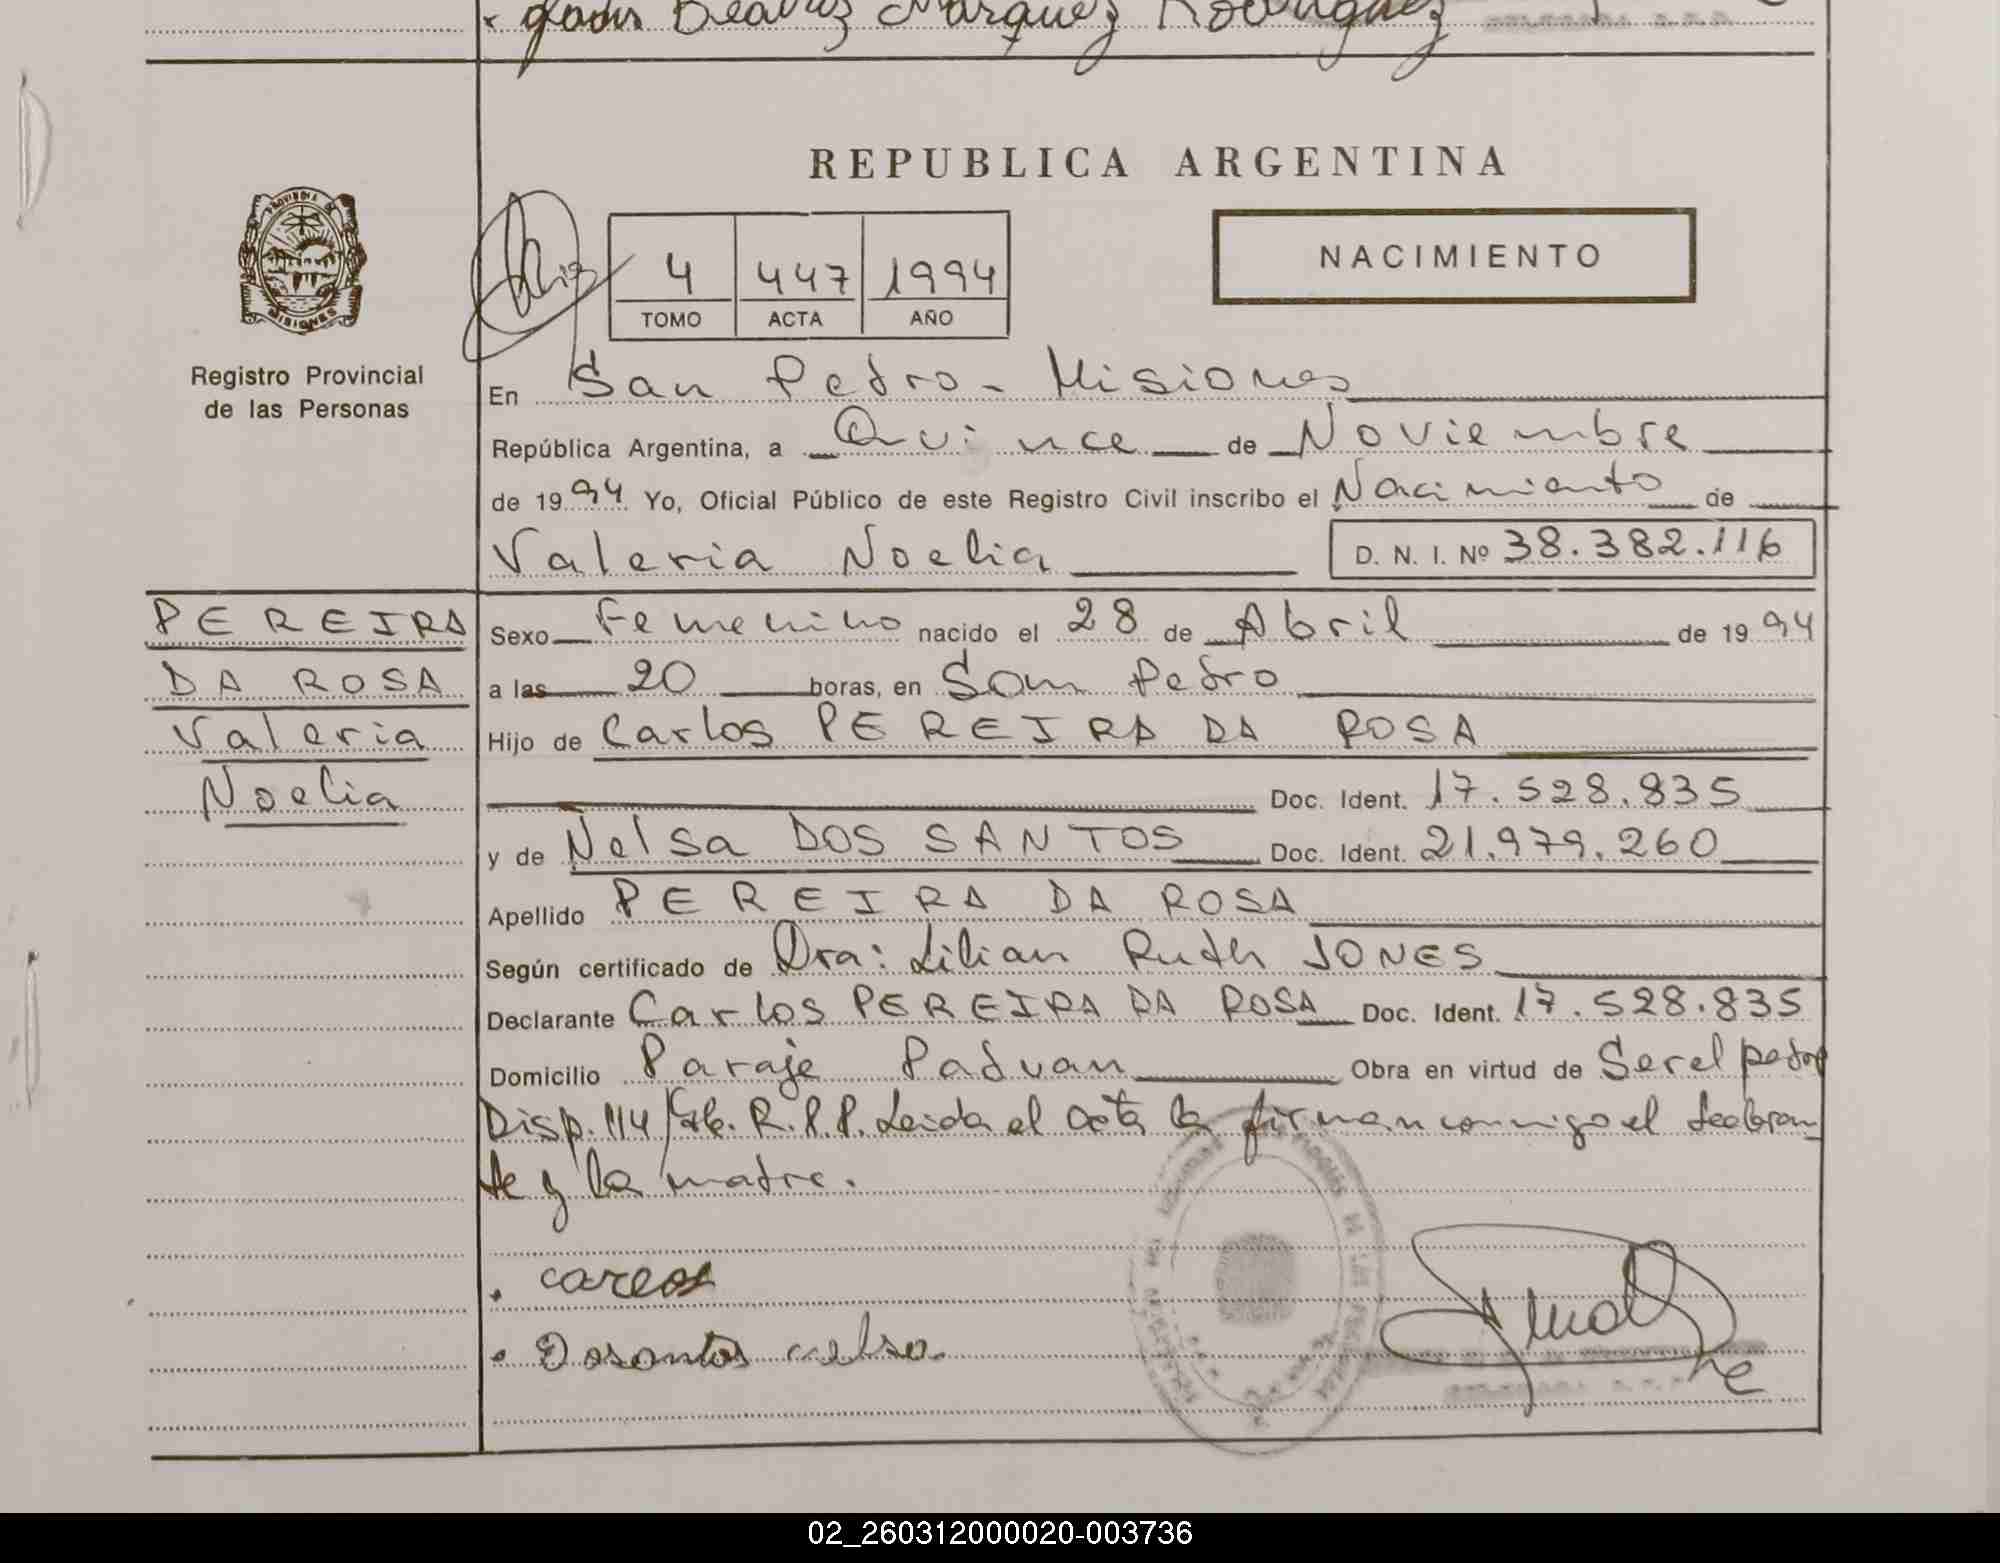 Beatriz Marquez Rodriguez
REPUBLICA ARGENTINA
PROVINCIA DE
MISIONES
4 447 1994
TOMO ACTA AÑO
NACIMIENTO
Registro Provincial
de las Personas
En San Pedro - Misiones
República Argentina, a Quince de Noviembre
de 1994 Yo, Oficial Público de este Registro Civil inscribo el Nacimiento de
Valeria Noelia D. N. I. Nº 38.382.116
PEREIRA
DA ROSA
Valeria
Noelia
Sexo Femenino nacido el 28 de Abril de 1994
a las 20 boras, en San Pedro
Hijo de Carlos PEREIRA DA ROSA
Doc. Ident. 17.528.835
y de Nelsa DOS SANTOS Doc. Ident. 21.979.260
Apellido PEREIRA DA ROSA
Según certificado de Dra: Lilian Ruth JONES
Declarante Carlos PEREIRA DA ROSA Doc. Ident. 17.528.835
Domicilio Paraje Paduan Obra en virtud de Ser el padre
Disp. 114/ R.P.P. Leida el acta la firman conmigo el declaran
te y la madre.
Dosantos
02_260312000020-003736